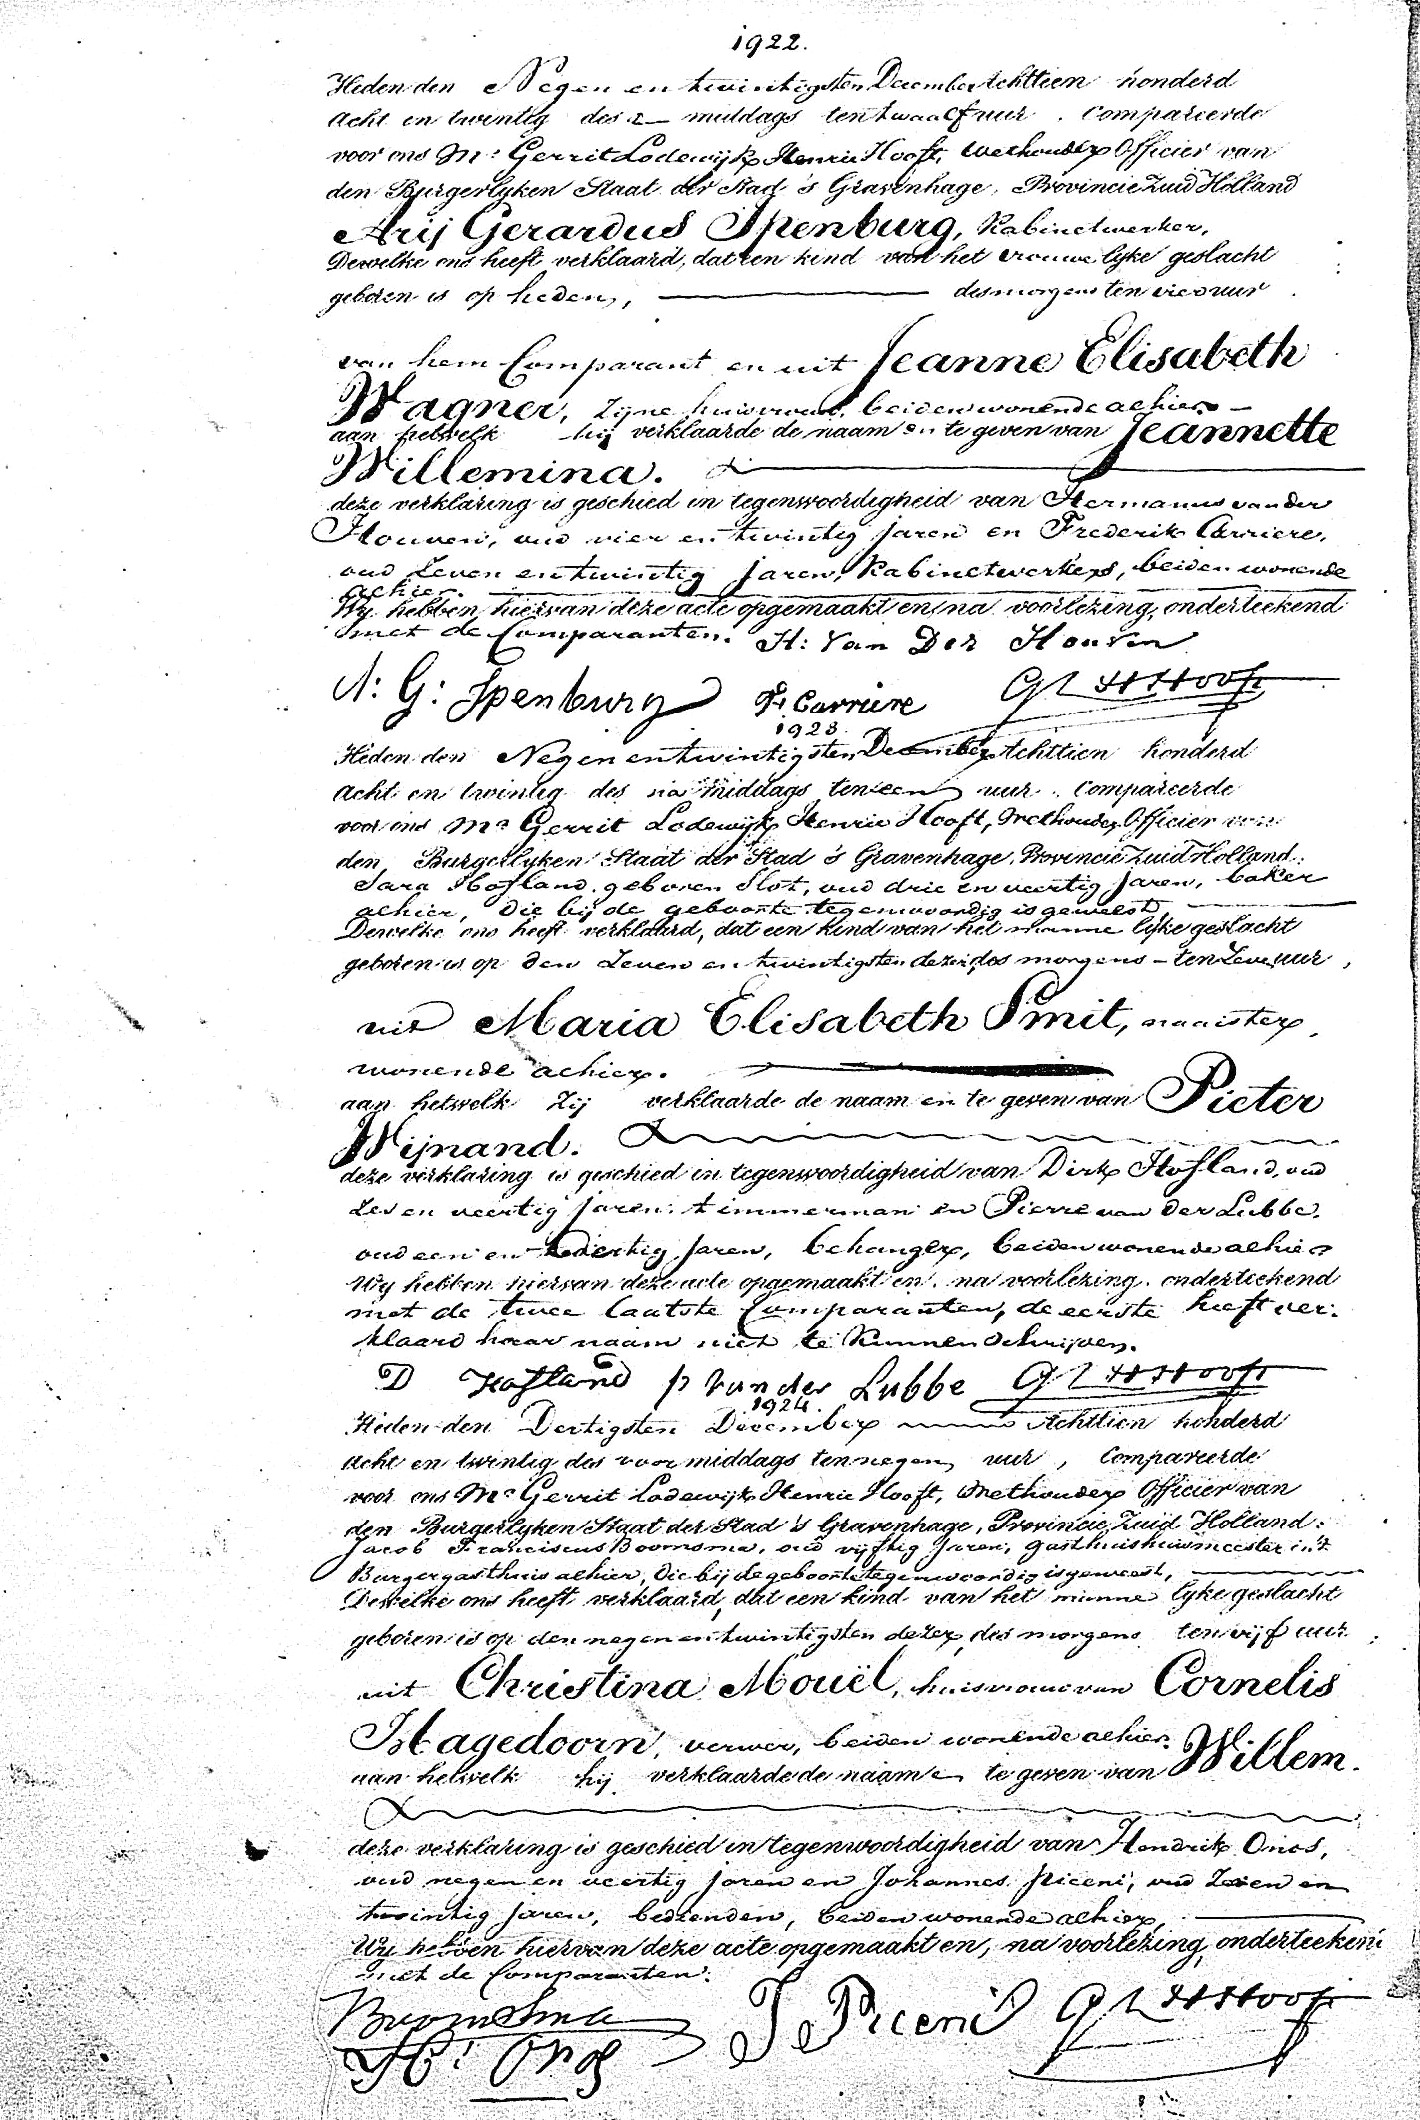 1922.
Heden den Negen en twintigsten December Achttien honderd
Acht en twintig des middags ten twaalf uur . Compareerde
voor ons Mr Gerrit Lodewijk Henric Hooft, Wethouder Officier van
den Burgerlyken Staat der Stad 's Gravenhage, Provincie Zuid Holland
Arij Gerardus Spenburg, Kabinetwerker,
Dewelke ons heeft verklaard, dat een kind van het vrouwe lyke geslacht
geboren is op heden, — des morgens ten vier uur
van hem Comparant en uit Jeanne Elisabeth
Wagner, zijne huisvrouw, beiden wonende alhier —
aan hetwelk hij verklaarde de naam en te geven van Jeannette
Willemina.
deze verklaring is geschied in tegenwoordigheid van Hermanus van der
Houven, oud vier en twintig jaren en Frederik Carriere,
oud Zeven en twintig jaren, Kabinetwerkers, beiden wonende
alhier.
Wy hebben hiervan deze acte opgemaakt en, na voorlezing, onderteekend
met de Comparanten. H: Van Der Houven
A: G: Spenburg F Carriere GLHHooft
1923.
Heden den Negen en twintigsten December Achttien honderd
Acht en twintig des na middags ten een uur . Compareerde
voor ons Mr Gerrit Lodewijk Henric Hooft, Wethouder Officier van
den Burgerlyken Staat der Stad 's Gravenhage, Provincie Zuid Holland.
Sara Hofland, geboren Slot, oud drie en veertig jaren, baker
alhier, die bij de geboorte tegenwoordig is geweest,
Dewelke ons heeft verklaard, dat een kind van het manne lyke geslacht
geboren is op den Zeven en twintigsten dezer, des morgens – ten Zeven uur,
uit Maria Elisabeth Smit, naaister,
wonende alhier.
aan hetwelk Zij verklaarde de naam en te geven van Pieter
Wijnand.
deze verklaring is geschied in tegenwoordigheid van Dirk Hofland, oud
Zes en veertig jaren, timmerman en Pierre van der Lubbe,
oud een en dertig jaren, behanger, beiden wonende alhier
Wy hebben hiervan deze acte opgemaakt en, na voorlezing, onderteekend
met de twee laatste Comparanten, de eerste heeft ver:
klaard haar naam niet te kunnen Schrijven.
D Hofland P van der Lubbe GLHHooft
1924.
Heden den Dertigsten December Achttien honderd
Acht en twintig des voor middags ten negen uur , Compareerde
voor ons Mr Gerrit Lodewijk Henric Hooft, Wethouder Officier van
den Burgerlyken Staat der Stad 's Gravenhage, Provincie Zuid Holland.
Jacob Franciscus Boomsma, oud vijftig Jaren, Gasthuishuismeester in 't
Burgergasthuis alhier, die bij de geboorte tegenwoordig is geweest,
Dewelke ons heeft verklaard, dat een kind van het manne lyke geslacht
geboren is op den negen en twintigsten dezer, des morgens ten vijf uur
uit Christina Mouël, huisvrouw van Cornelis
Hagedoorn, verwer, beiden wonende alhier.
aan hetwelk hij verklaarde de naam te geven van Willem.
deze verklaring is geschied in tegenwoordigheid van Hendrik Onos,
oud negen en veertig jaren en Johannes Piceni, oud Zeven en
twintig jaren, bedienden, beiden wonende alhier,
Wy hebben hiervan deze acte opgemaakt en, na voorlezing, onderteekend
met de Comparanten.
Boomsma J Piceni GLHHooft
H: Onos